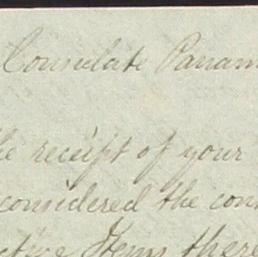 Consulate Panam
he receipt of your
considered the con
ctive Items there